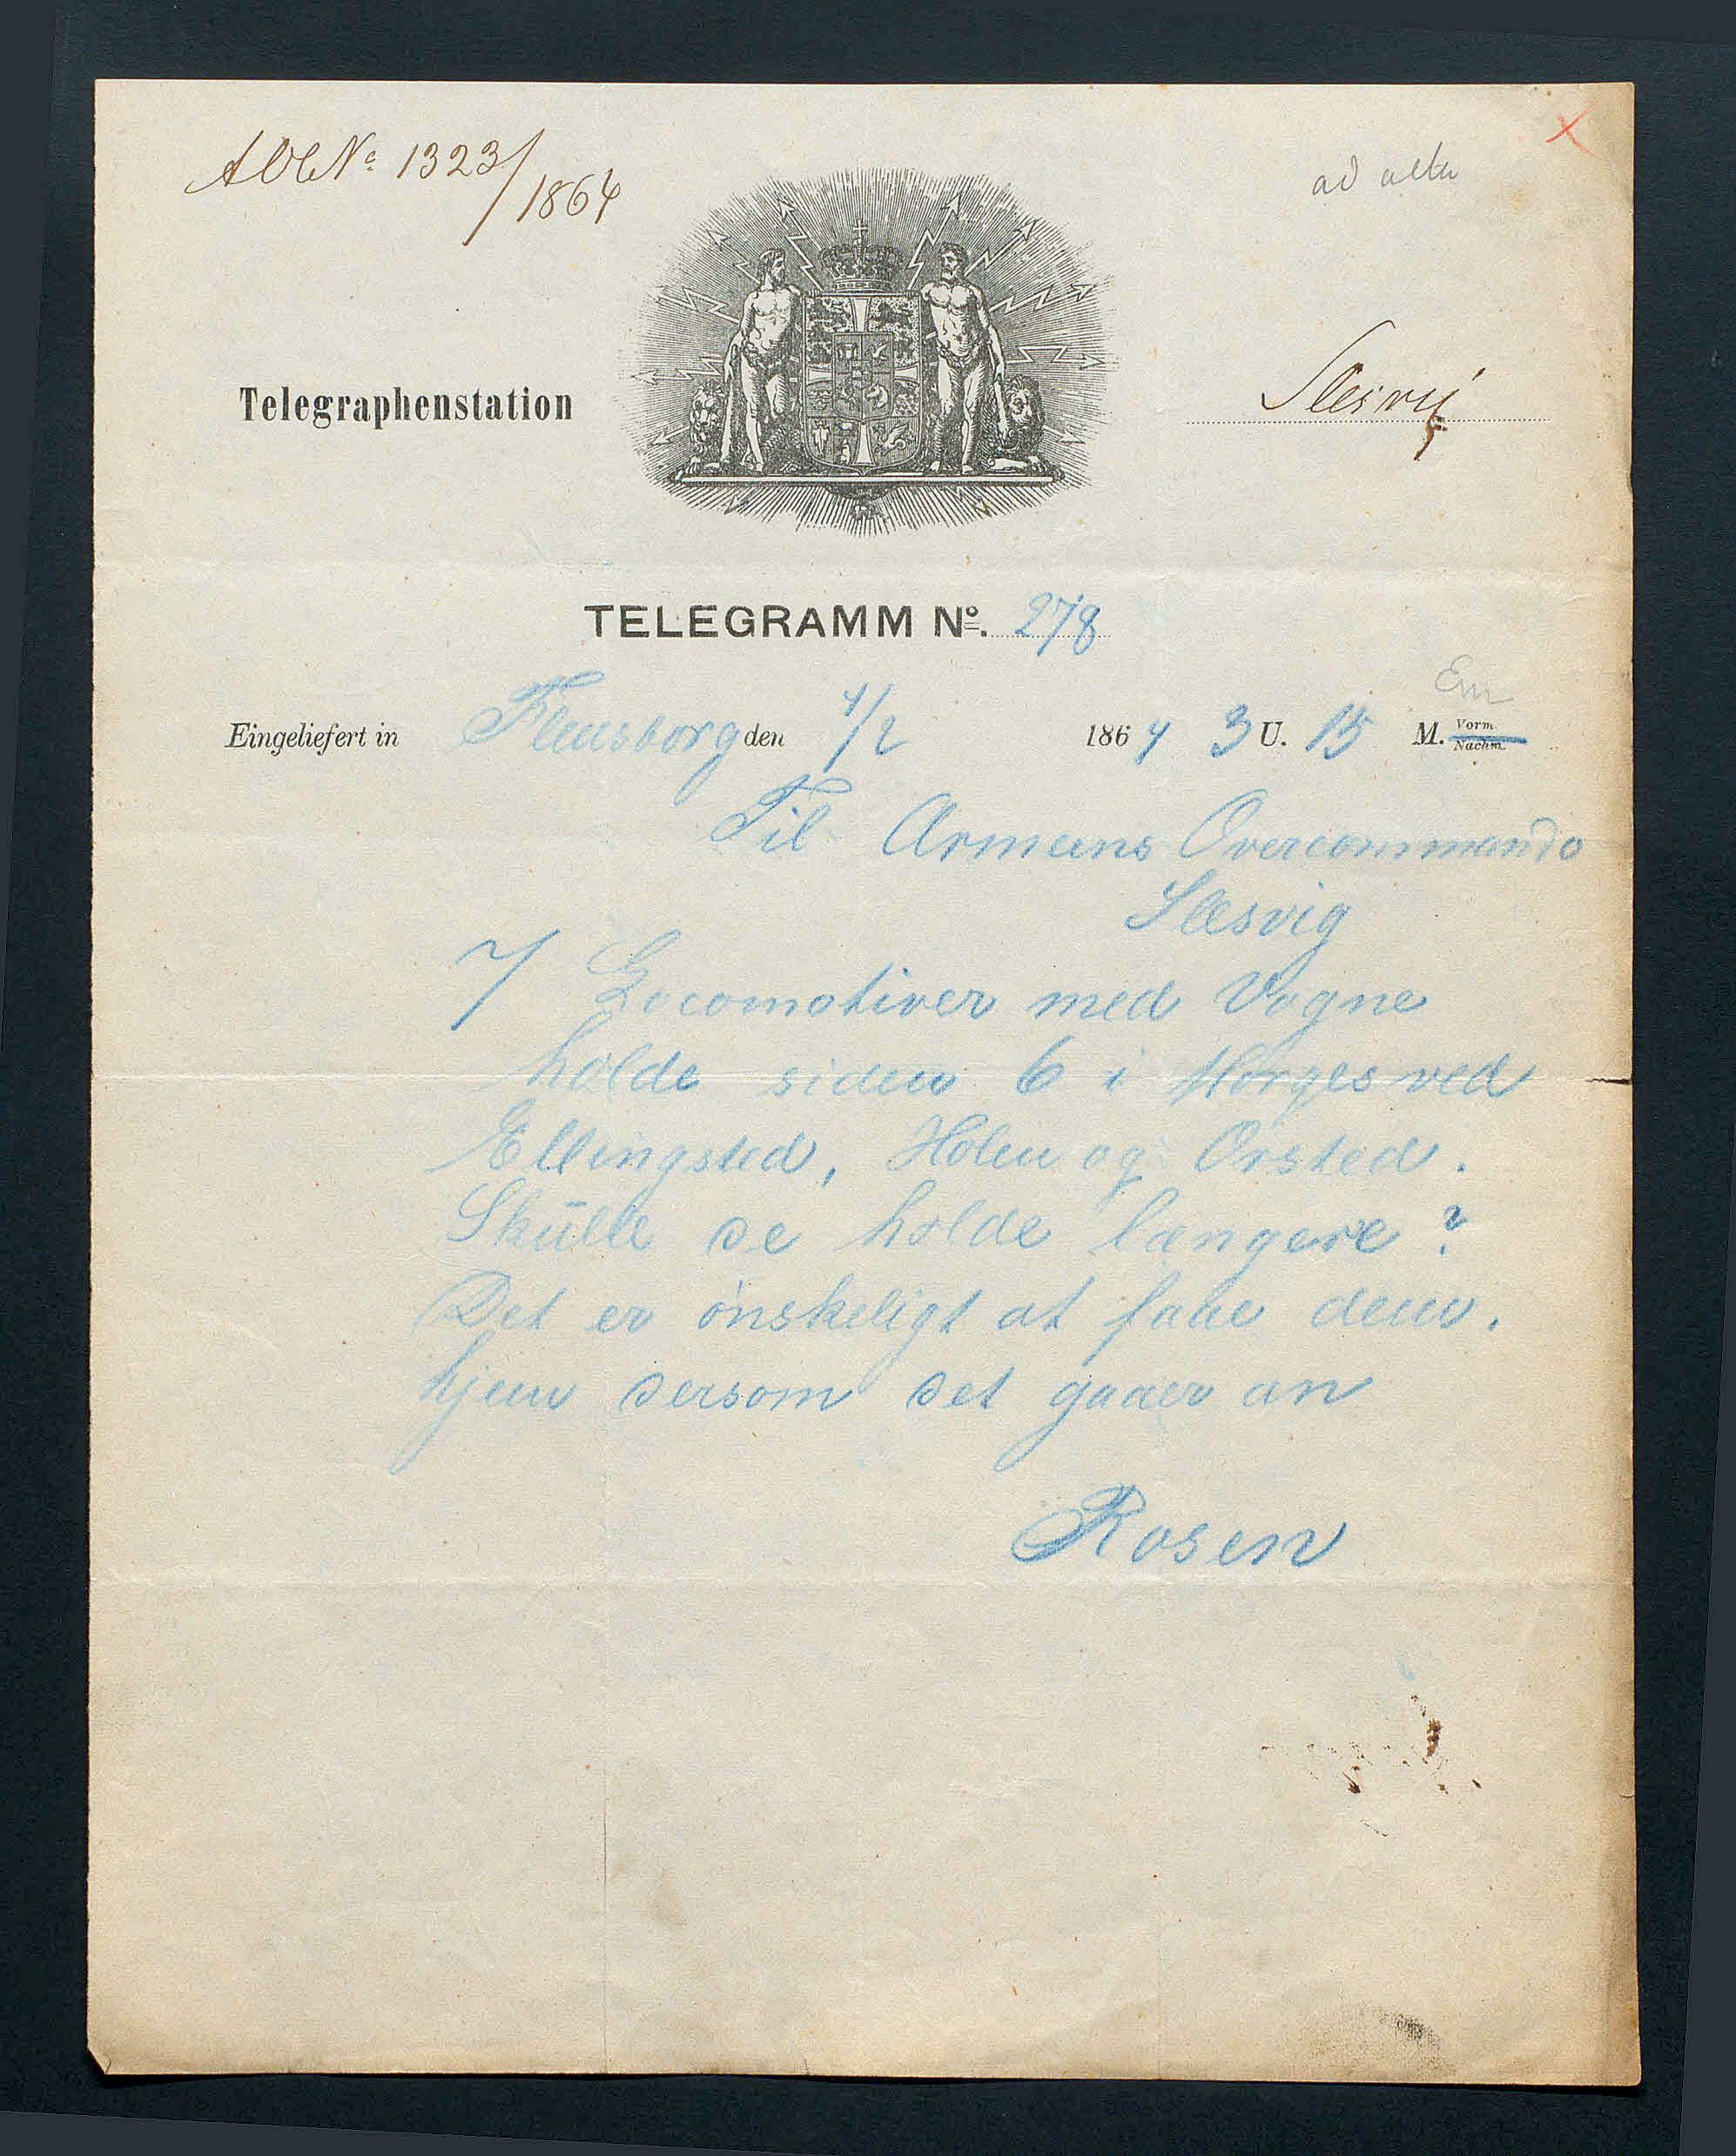 AOC No 1323/1864
ad acta
Telegraphenstation
Slesvig
TELEGRAMM No. 278
Em
Eingeliefert in Flensborg den 4/2 1864 3 U. 15 M. Vorm. Nachm.
Til Armeens Overcommando
Slesvig
7 Locomotiver med Vogne
holde siden 6 i Morges ved
Ellingsted, Holen og Orsted.
Skulle de holde længere?
Det er ønskeligt at faae dem.
hjem dersom det gaaer an
Rosen